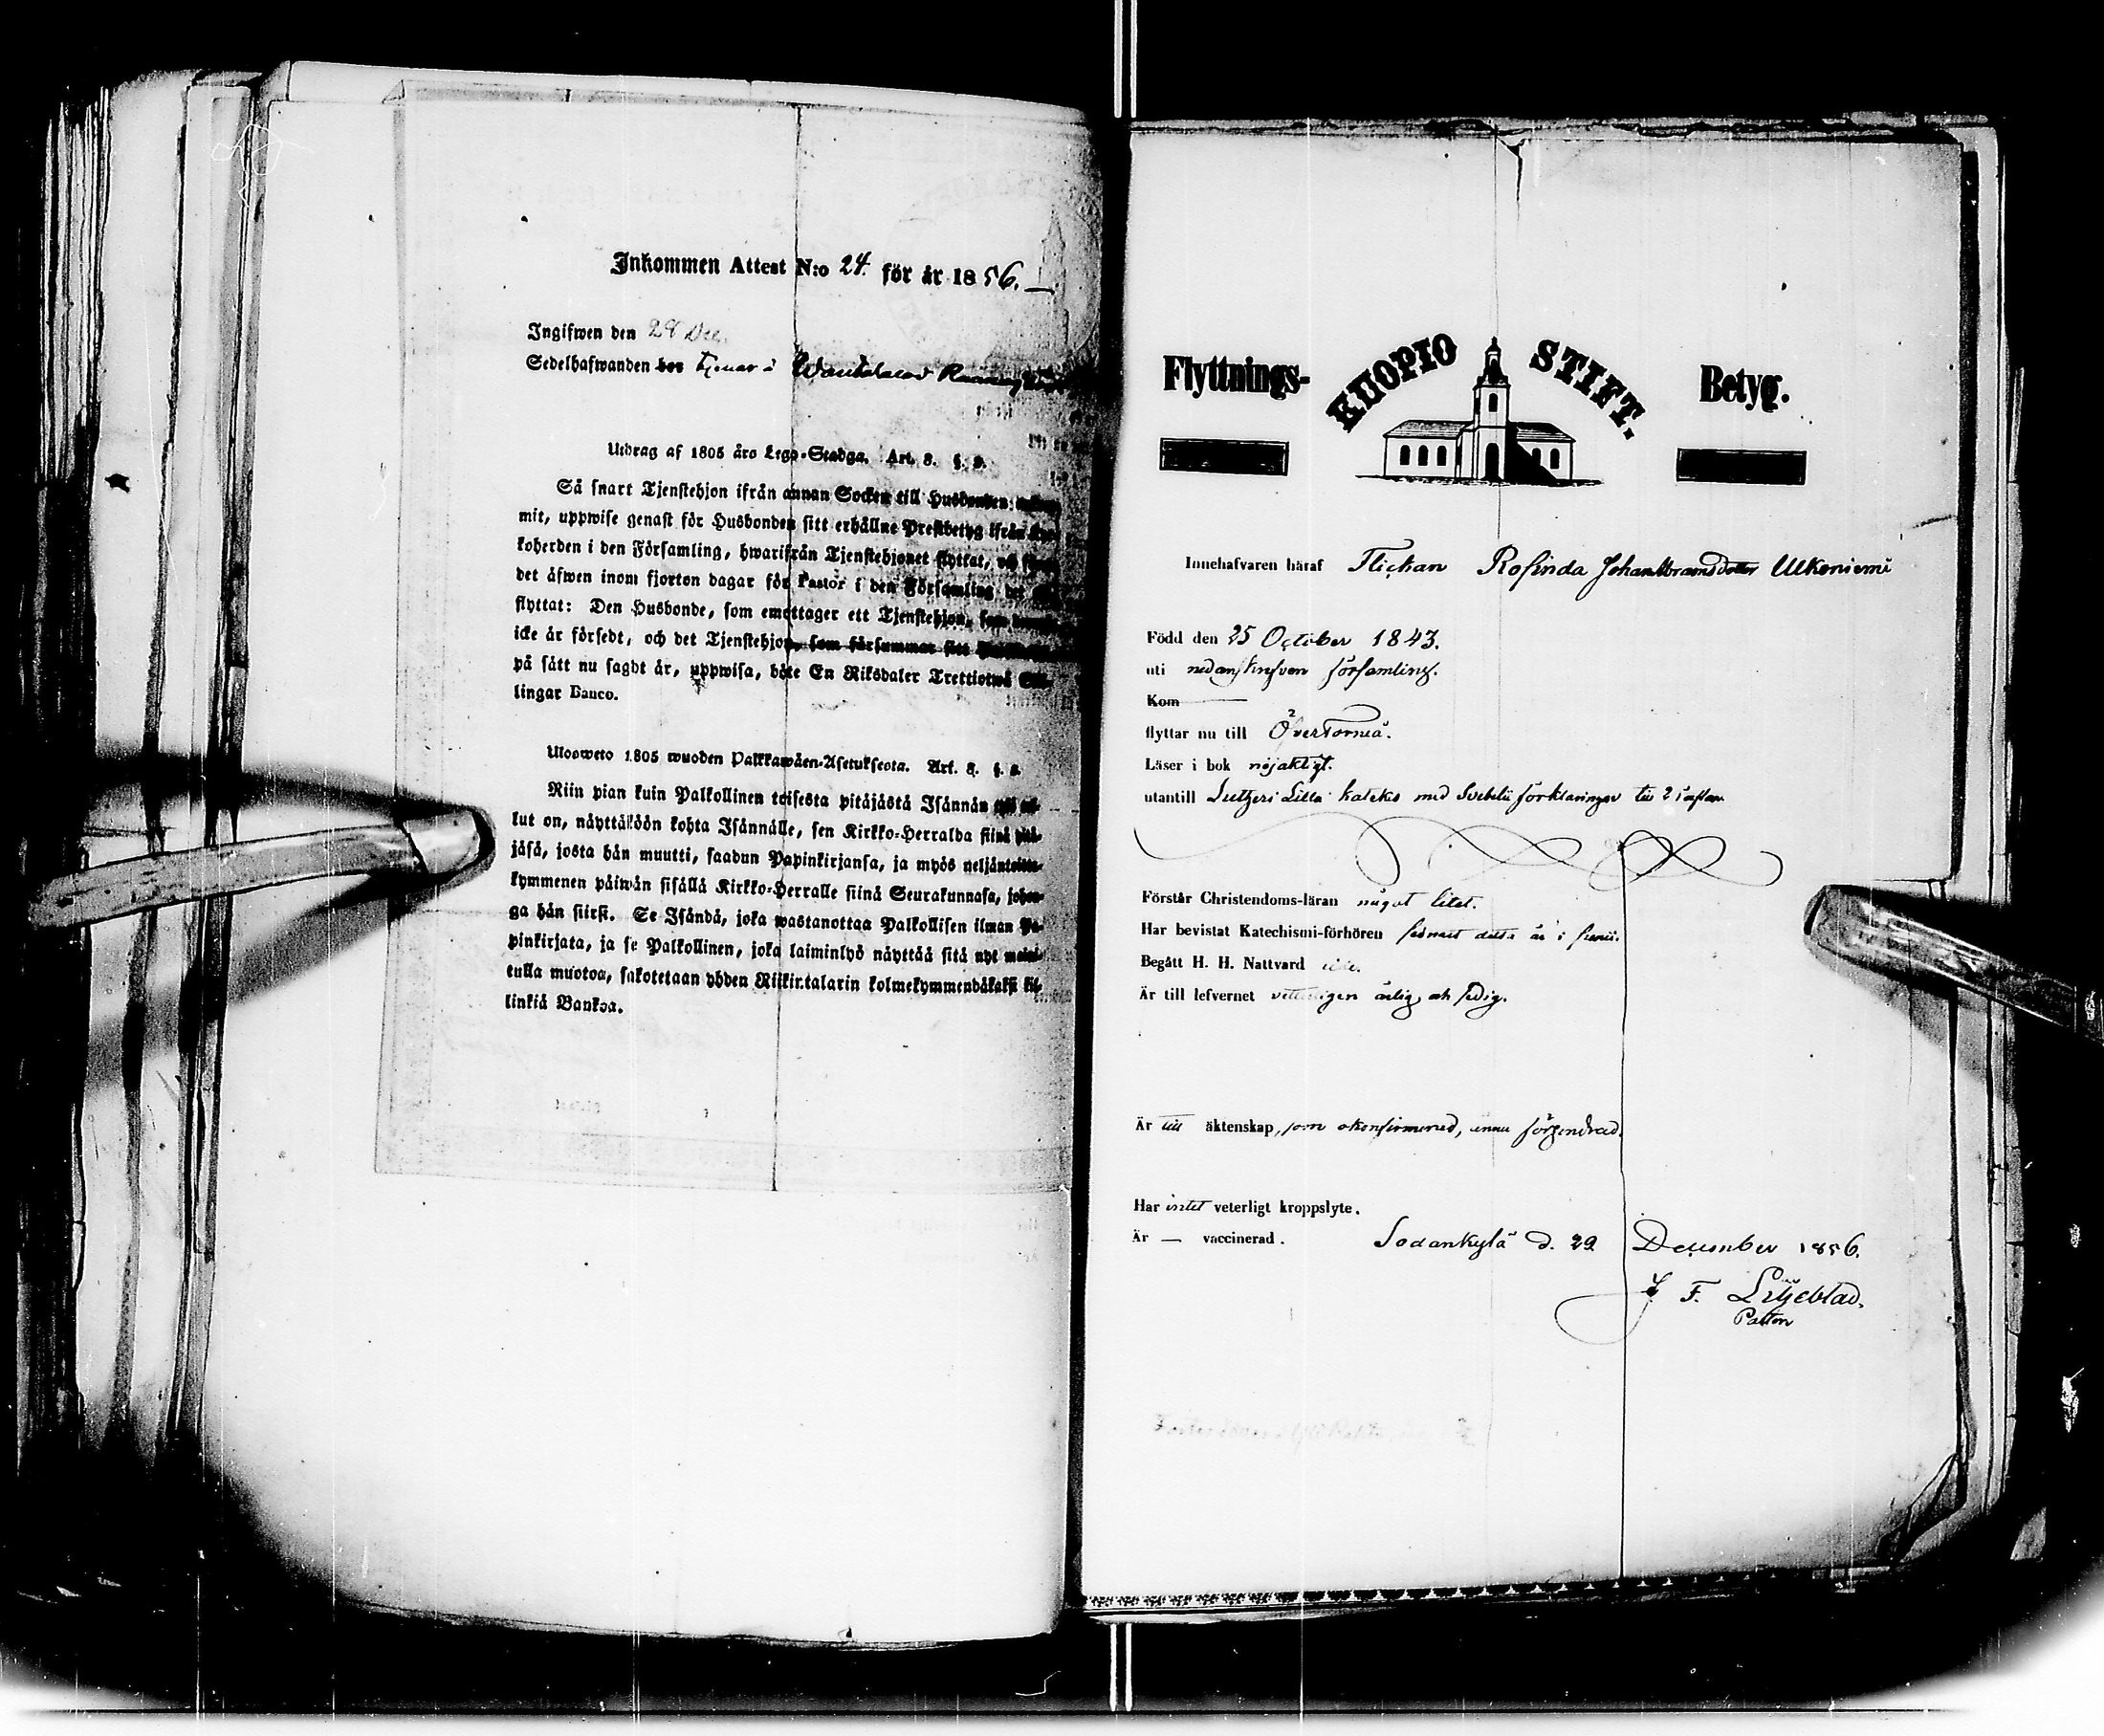 Inkommen Attest N:o 24. för år 1856.
Ingifwen den 28 Dec.
Sedelhafwanden bor tjenar i
Utdrag af 1805 års Lego-Stadga. Art. 8. §. 9.
Så snart Tjenstehjon ifrån annan Socken till Husbonden
mit, uppwise genast för Husbonden sitt erhållne Prestbetyg ifrån
koherden i den Församling, hwarifrån Tjenstehjonet flyttat, och
det äfwen inom fjorton dagar för Pastor i den Församling det
flyttat: Den Husbonde, som emottager ett Tjenstehjon, som
icke är försedt, och det Tjenstehjon, som försummar sitt
på sätt nu sagdt är, uppwisa, böte En Riksdaler Trettiotwå Skil-
lingar Banco.
Ulosweto 1805 wuoden Palkkawäen-Asetuksesta. Art. 8. §.
Niin pian kuin Palkollinen toisesta pitäjästä Isännän
lut on, näyttäköön kohta Isännälle, sen Kirkko-Herralda siinä pitä-
jäsä, josta hän muutti, saadun Papinkirjansa, ja myös neljäntoista-
kymmenen päiwän sisällä Kirkko-Herralle siinä Seurakunnasa, johon-
ga hän siirsi. Se Isändä, joka wastanottaa Palkollisen ilman Pa-
pinkirjata, ja se Palkollinen, joka laiminlyö näyttää sitä nyt maini-
tulla muotoa, sakotetaan yhden Riikin talarin kolmekymmendäkaksi kil-
linkiä Bankoa.
Flyttnings- KUOPIO STIFT. Betyg.
Innehafvaren häraf Flickan Rosinda Johan Abramsdotter Ulkuniemi
Född den 25 October 1843.
uti nedanskrifven församling.
Kom
flyttar nu till Öfvertorneå.
Läser i bok nöjaktigt.
utantill Lutheri Lilla katekes med Svebelii förklaringar till 2
Förstår Christendoms-läran något litet.
Har bevistat Katechismi-förhören sednast detta år i
Begått H. H. Nattvard icke.
Är till lefvernet vetterligen ärlig och sedig.
Är till äktenskap, som okonfirmerad, ännu förhindrad.
Har intet veterligt kroppslyte.
Är — vaccinerad. Sodankylä d. 29 December 1856.
F. Liljeblad.
Pastor